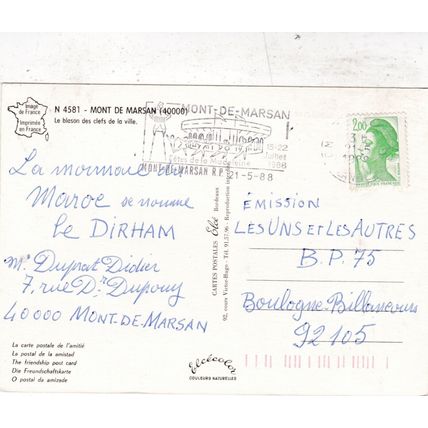 Image
de France
Imprimée
en France
N 4581 - MONT DE MARSAN (40000)
Le blason des clefs de la ville.
MONT-DE-MARSAN
15-22
Juillet
1988
Fêtes de la Madeleine
MONT-DE-MARSAN R.P.
21-5-88
2,00
La monnaie du
Maroc se nomme
le DIRHAM
Mr Duprat Didier
7, rue Dr Dupouy
40000 MONT-DE-MARSAN
La carte postale de l'amitié
La postal de la amistad
The friendship post card
Die Freundschaftskarte
O postal da amizade
CARTES POSTALES Elcé Bordeaux
92, cours Victor-Hugo - Tél. 91.57.96 - Reproduction
Elcécolor
COULEURS NATURELLES
ÉMISSION
LES UNS et LES AUTRES
B.P. 75
Boulogne Billancourt
92105